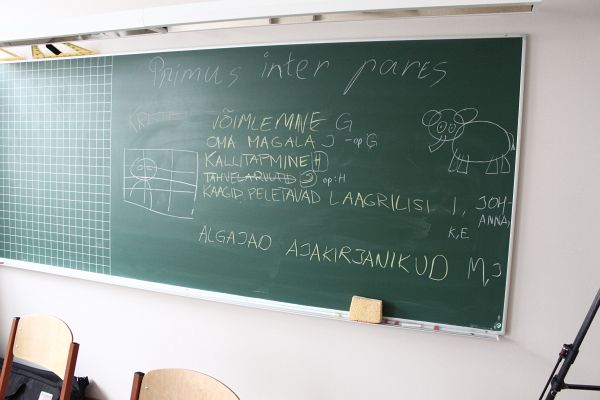 Primus inter pares
VÕIMLEMINE G
OMA MAGALA J -op G
KALLITAMINE H
TAHVELARVUTID J op-H
KAAGID PELETAVAD LAAGRILISI I, JOH-
ANNA,
K,E
ALGAJAD AJAKIRJANIKUD M,J